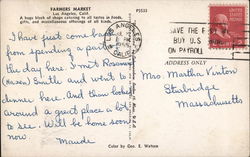 FARMERS MARKET
Los Angeles, Calif.
A huge block of shops catering to all tastes in foods,
gifts, and miscellaneous offerings of all kinds.
P5533
I have just come back
from spending a part of
the day here. I met Rosemary
Smith and went to
dinner here. And then looked
around a great place a lot
to see. Will be home soon
now.
Maude
LOS ANGELES
CALIF.
SAVE THE EASY
BUY U.S.
ON PAYROLL
ADDRESS ONLY
Mrs. Martha Vinton
Sturbridge
Massachusetts
Color by Geo. E. Watson